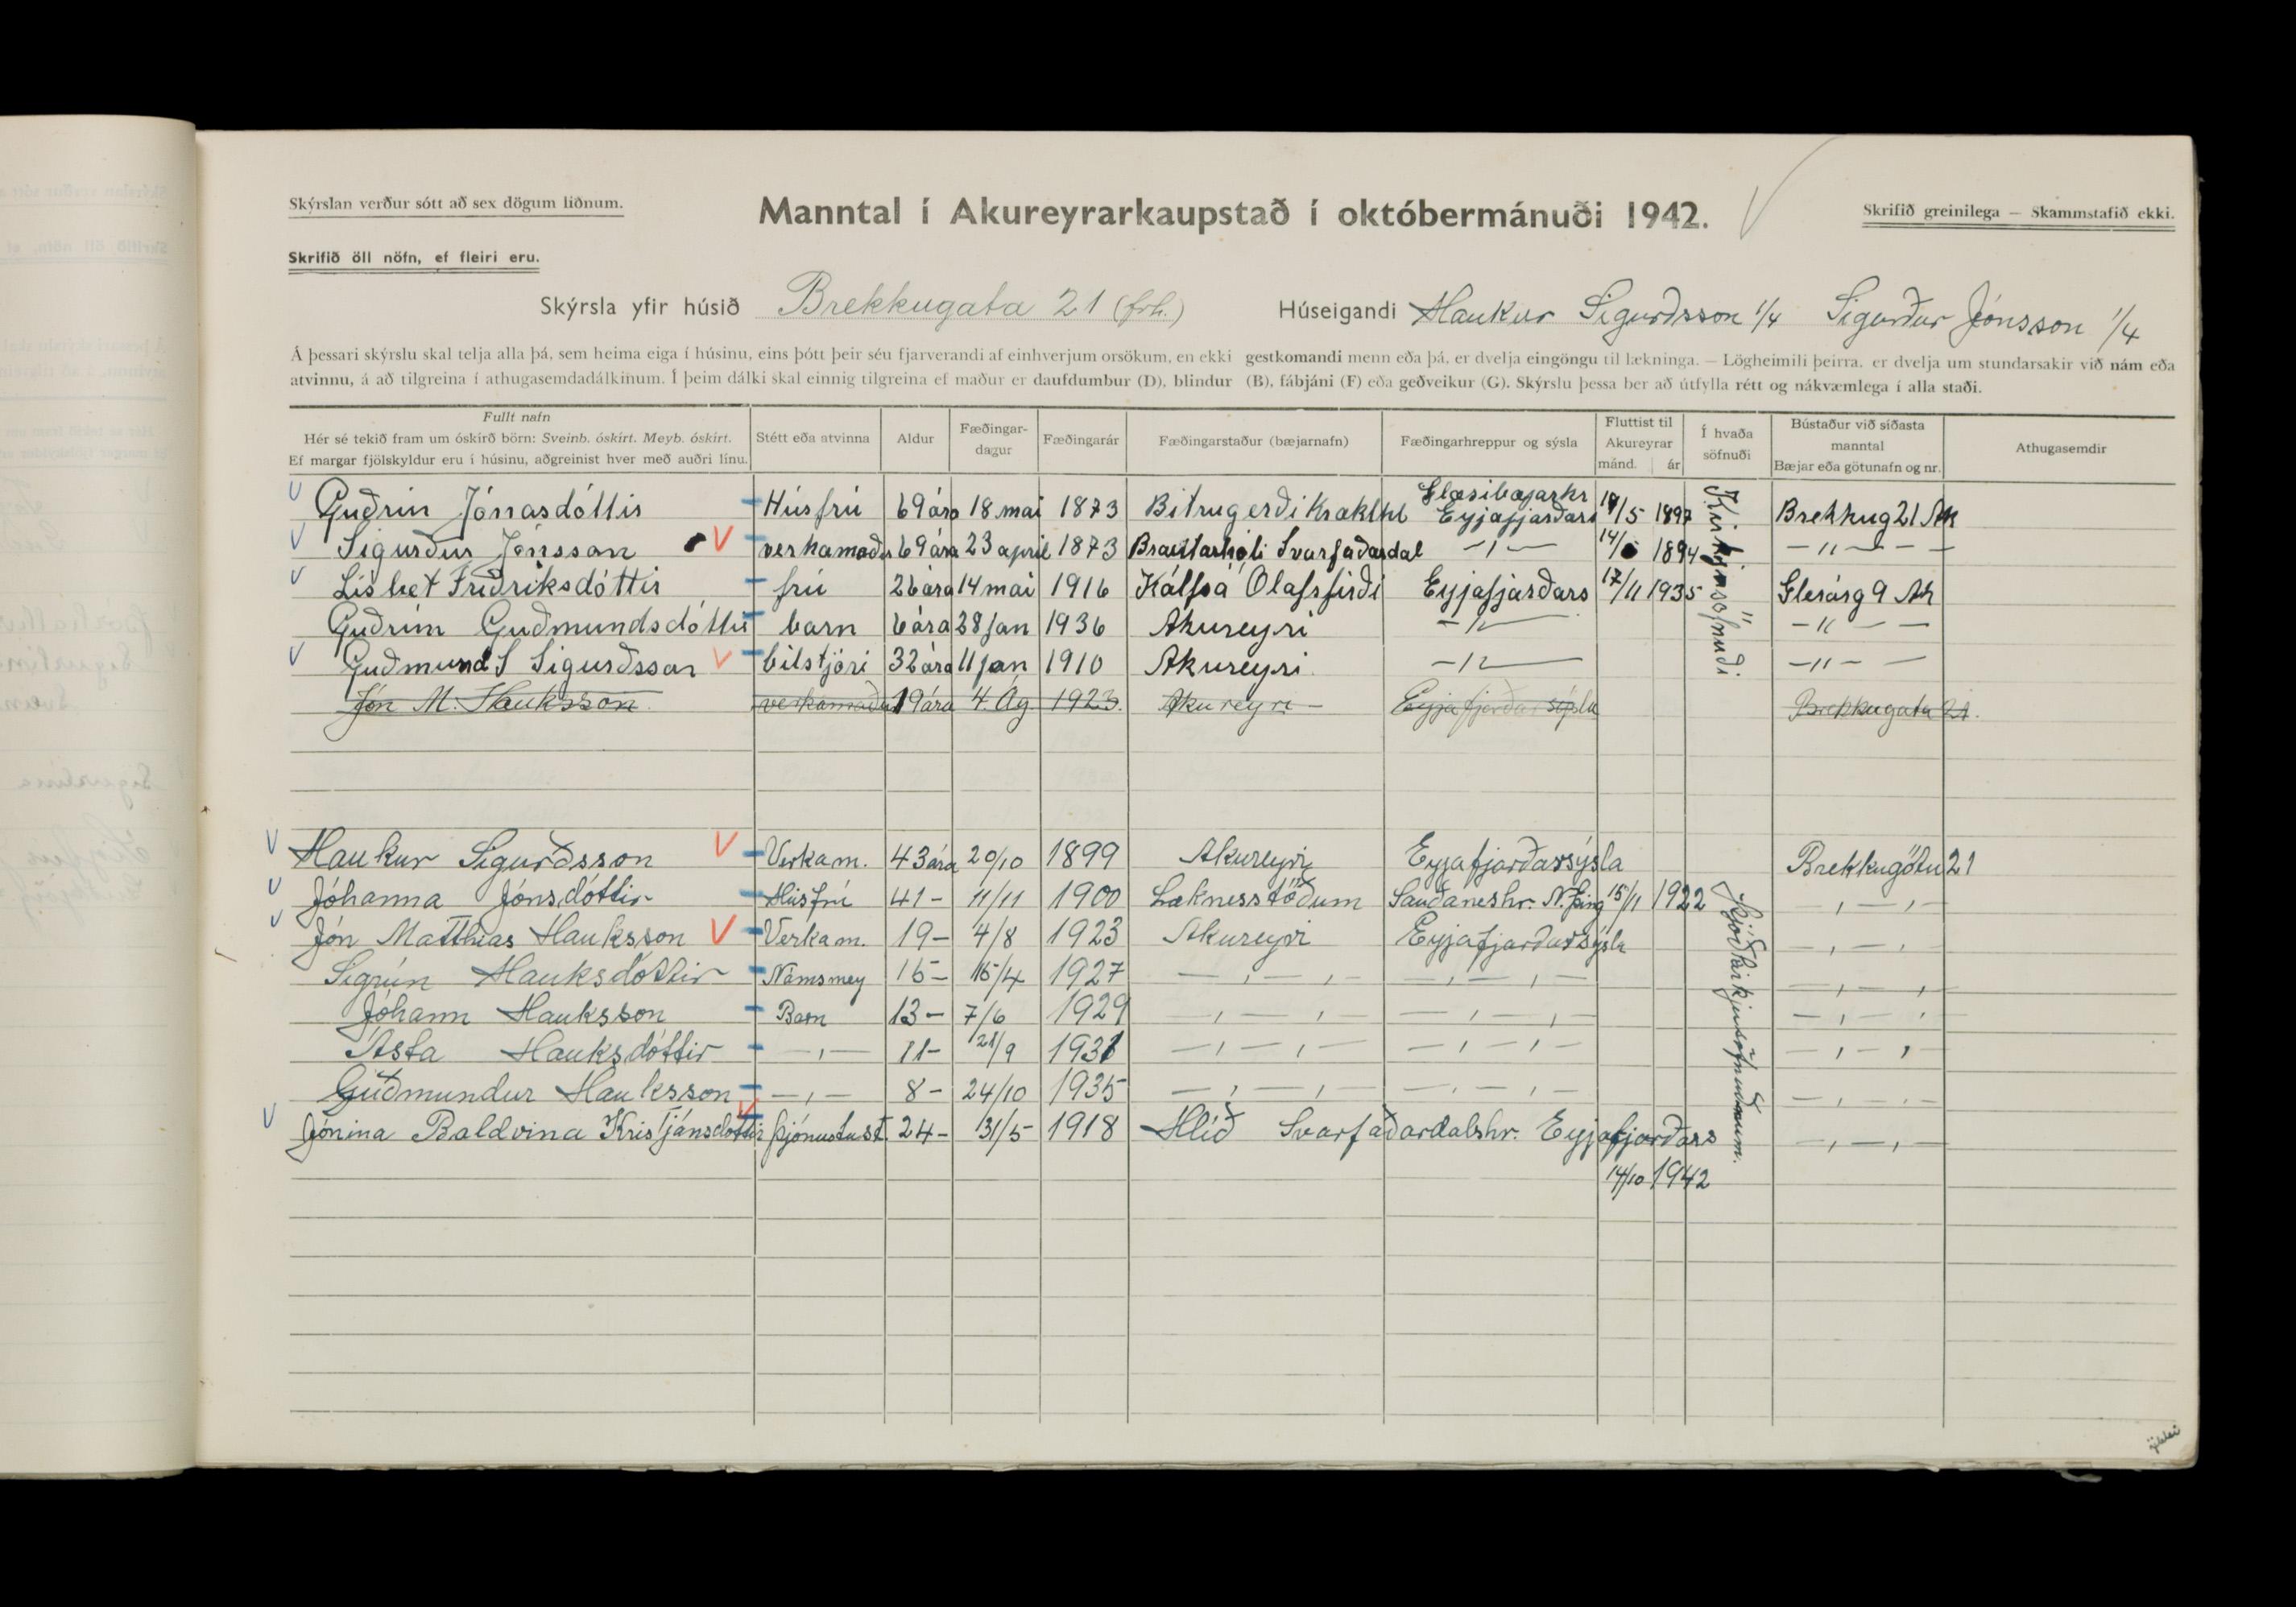 Skýrslan verður sótt að sex dögum liðnum.
Manntal í Akureyrarkaupstað í októbermánuði 1942.
Skrifið greinilega — Skammstafið ekki.
Skrifið öll nöfn, ef fleiri eru.
Skýrsla yfir húsið Brekkugata 21 (frh.) Húseigandi Haukur Sigurðsson 1/4 Sigurður Jónsson 1/4
Á þessari skýrslu skal telja alla þá, sem heima eiga í húsinu, eins þótt þeir séu fjarverandi af einhverjum orsökum, en ekki gestkomandi menn eða þá, er dvelja eingöngu til lækninga. — Lögheimili þeirra, er dvelja um stundarsakir við nám eða
atvinnu, á að tilgreina í athugasemdadálkinum. Í þeim dálki skal einnig tilgreina ef maður er daufdumbur (D), blindur (B), fábjáni (F) eða geðveikur (G). Skýrslu þessa ber að útfylla rétt og nákvæmlega í alla staði.
Fullt nafn
Hér sé tekið fram um óskírð börn: Sveinb. óskírt. Meyb. óskírt.
Ef margar fjölskyldur eru í húsinu, aðgreinist hver með auðri línu.
Stétt eða atvinna
Aldur
Fæðingar-
dagur
Fæðingarár
Fæðingarstaður (bæjarnafn)
Fæðingarhreppur og sýsla
Fluttist til
Akureyrar
mánd. ár
Í hvaða
söfnuði
Bústaður við síðasta
manntal
Bæjar eða götunafn og nr.
Athugasemdir
Guðrún Jónasdóttir Húsfrú 69 ára 18 mai 1873 Bitrugerði Kræklhl Glæsibæjarhr Eyjafjarðars /5 1897 Brekkug 21 Ak
Sigurður Jónsson verkamaður 69 ára 23 april 1873 Brautarhóli Svarfaðardal — " — 14/ 1894 — " — — —
Lísbet Friðriksdóttir frú 26 ára 14 mai 1916 Kálfsá Ólafsfirði Eyjafjarðars 17/11 1935 Glerárg 9 Ak
Guðrún Guðmundsdóttir barn 6 ára 28 jan 1936 Akureyri — " — — " — —
Guðmund S Sigurðsson bílstjóri 32 ára 11 jan 1910 Akureyri — " — — " — —
Jón M. Hauksson verkamaður 19 ára 4. Ág 1923. Akureyri — Eyjafjarðar sýsla Brekkugata 21.
Kirkjusöfnuði
Haukur Sigurðsson Verkam. 43 ára 20/10 1899 Akureyri Eyjafjarðarsýsla Brekkugötu 21
Jóhanna Jónsdóttir Húsfrú 41 — 11/11 1900 Læknesstöðum Sauðaneshr. N.Þing 15/11 1922 — , — , —
Jón Matthías Hauksson Verkam. 19 — 4/8 1923 Akureyri Eyjafjarðarsýsla — , — , —
Sigrún Hauksdóttir Námsmey 15 — 15/4 1927 — , — , — — , — , — — , — , —
Jóhann Hauksson Barn 13 — 7/6 1929 — , — , — — , — , — — , — , —
Ásta Hauksdóttir — , — 11 — 21/9 1931 — , — , — — , — , — — , — , —
Guðmundur Hauksson — , — 8 — 24/10 1935 — , — , — — , — , — — , — , —
Jónina Baldvina Kristjánsdóttir þjónustust. 24 — 31/5 1918 Hlíð Svarfaðardalshr. Eyjafjarðars — , — , —
14/10 1942
Þjóðkirkjusöfnuðnum.